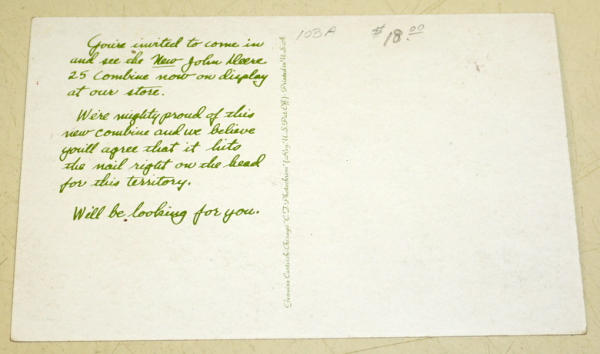 You're invited to come in
and see the New John Deere
25 Combine now on display
at our store.
We're mighty proud of this
new combine and we believe
you'll agree that it hits
the nail right on the head
for this territory.
Will be looking for you.
Genuine Curteich-Chicago "C.T. Photochrom" (Reg. U.S. Pat. Off.) Printed in U.S.A.
103A
$18.00